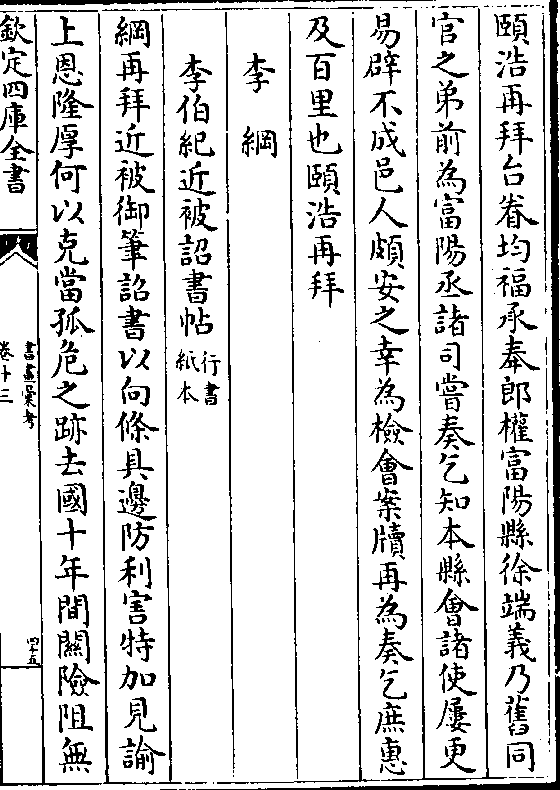 頤浩再拜台眷均福承奉郎權富陽縣徐端義乃舊同
官之弟前為富陽丞諸司嘗奏乞知本縣會諸使屢更
易辟不成邑人頗安之幸為檢會案牘再為奏乞庶惠
及百里也頤浩再拜
李綱
李伯紀近被詔書帖行書紙本
綱再拜近被御筆詔書以向條具邊防利害特加見諭
上恩隆厚何以克當孤危之跡去國十年間關險阻無
欽定四庫全書
書畫彚考
卷十三
四十五